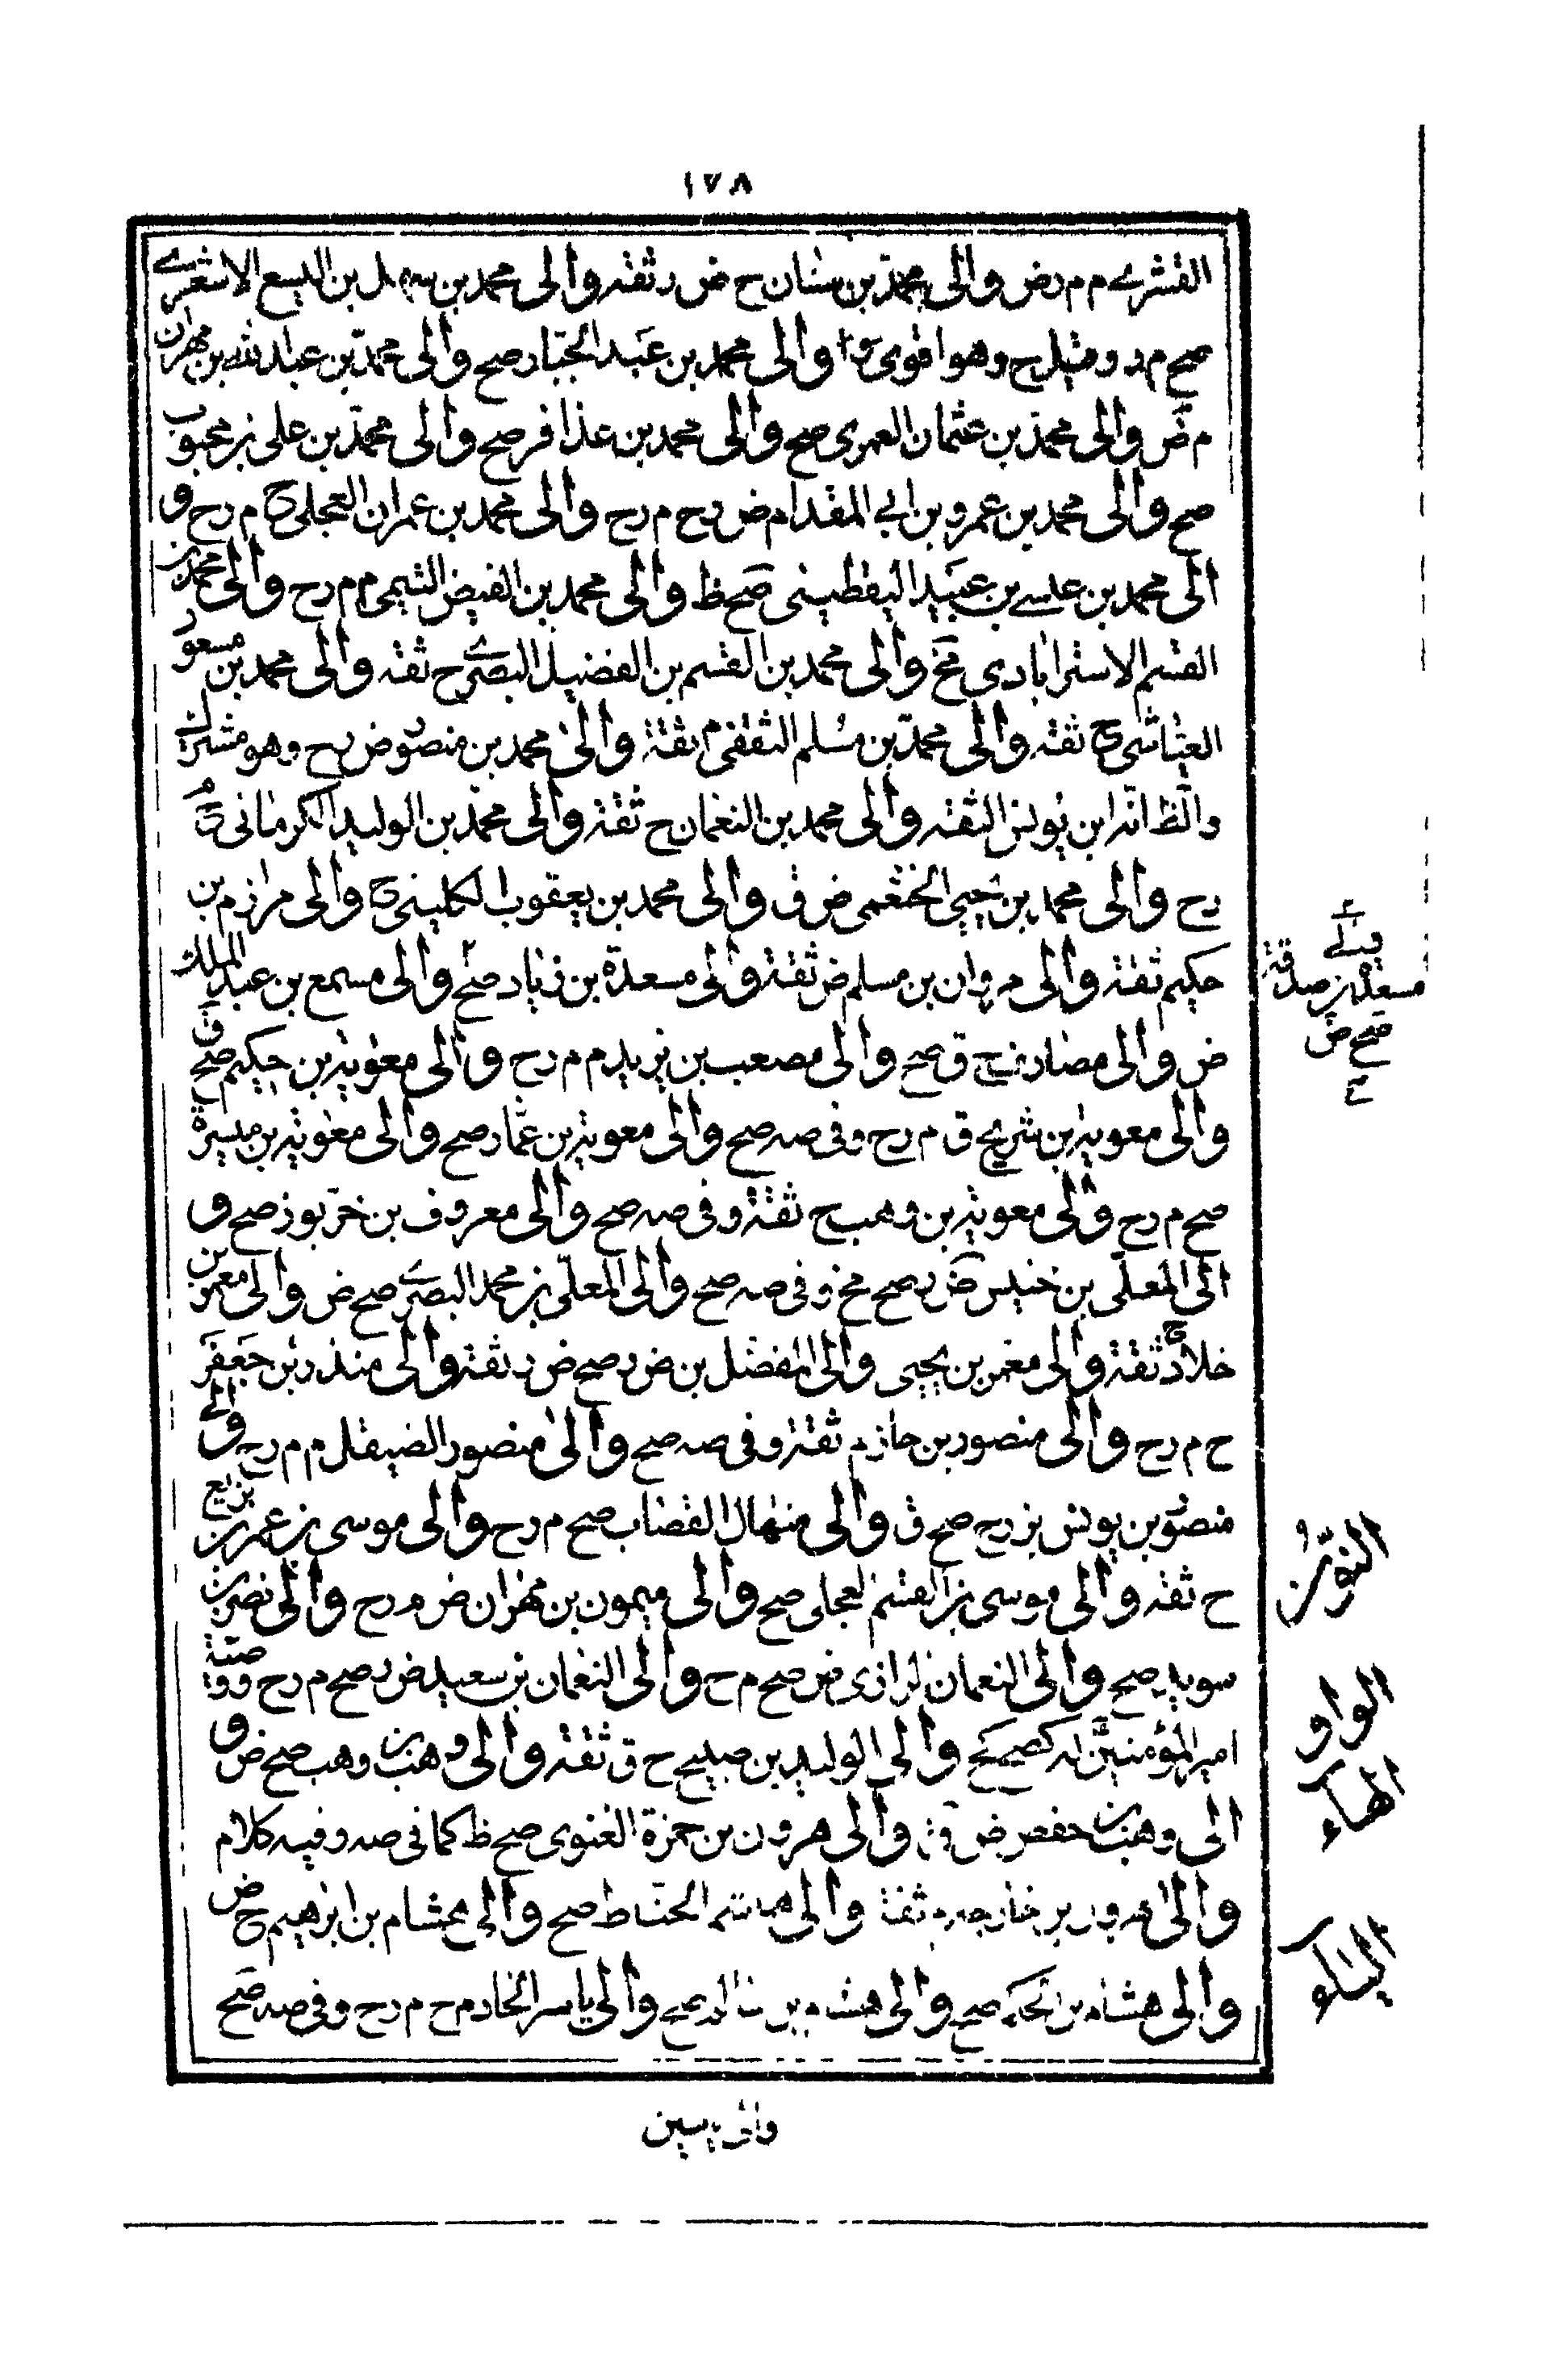 ١٧٨
القشرى م م رض والى محمد بن سنان ح ض ر ثقه والى محمد بن سهل بن اليسع الاشعرى
صح م د وقيل ح وهو اقوى والى محمد بن عبد الجبار صح والى محمد بن عبد الله بن مهران
م ض والى محمد بن عثمان العمرى صح والى محمد بن عذافر صح والى محمد بن على بن محبوب
صح والى محمد بن عمرو بن ابى المقدام ض رح م رح والى محمد بن عمران العجلى ح م رح و
الى محمد بن عيسى بن عبيد اليقطينى صح ظ والى محمد بن الفيض التيمى م م رح والى محمد بن
القسم الاسترابادى مخ والى محمد بن القسم بن الفضيل البصرى ح ثقه والى محمد بن مسعود
العياشى ح ثقه والى محمد بن مسلم الثقفى م ثقة والى محمد بن منصور ض رح وهو مشترك
والظ انه ابن يونس الثقه والى محمد بن النعمان ح ثقة والى محمد بن الوليد الكرمانى ح م
رح والى محمد بن يحيى الخثعمى ض ق والى محمد بن يعقوب الكلينى ح والى مرازم بن
حكيم ثقة والى مروان بن مسلم ض ثقة والى مسعدة بن زياد صح والى مسمع بن عبد الملك
ض والى مصادف ح ق صح والى مصعب بن يزيد م م رح والى معوية بن حكيم صح ق
والى معوية بن شريح ق م رح وفى صه صح والى معوية بن عمار صح والى معوية بن ميسرة
صح م رح والى معوية بن وهب ح ثقة وفى صه صح والى معروف بن خربوذ صح و
الى المعلى بن خنيس ض ر صح مخ وفى صه صح والى المعلى بن محمد البصرى صح ض والى معمر بن
خلاد ح ثقة والى معمر بن يحيى والى المفضل بن ض ر صح ض ر ثقة والى منذر بن جعفر
ح م رح والى منصور بن حازم ثقة وفى صه صح والى منصور الصيقل م م رح والى
منصور بن يونس بزرج صح ق والى منهال القصاب صح م رح والى موسى بن عمر بن بزيع
ح ثقه والى موسى بن القسم العجلى صح والى ميمون بن مهران ض م رح والى نضر بن
سويد صح والى النعمان الرازى ض صح م ح والى النعمان بن سعيد ض ر صح م رح ووصية
امير المؤمنين له والى الوليد بن صبيح ح ق ثقة والى وهب بن وهب صح ض و
الى وهيب بن حفص ض ق والى هرون بن حمزة الغنوى صح ظ كما فى صه وفيه كلام
والى هرون بن خارجه ثقة والى هاشم الحناط صح والى هشام بن ابرهيم ح ض
والى هشام بن الحكم صح والى هشام بن سالم صح والى ياسر الخادم ح م رح وفى صه صح
والى مسعدة بن صدقة
صح ض
النون
الواو
الهاء
الياء
والى يسين